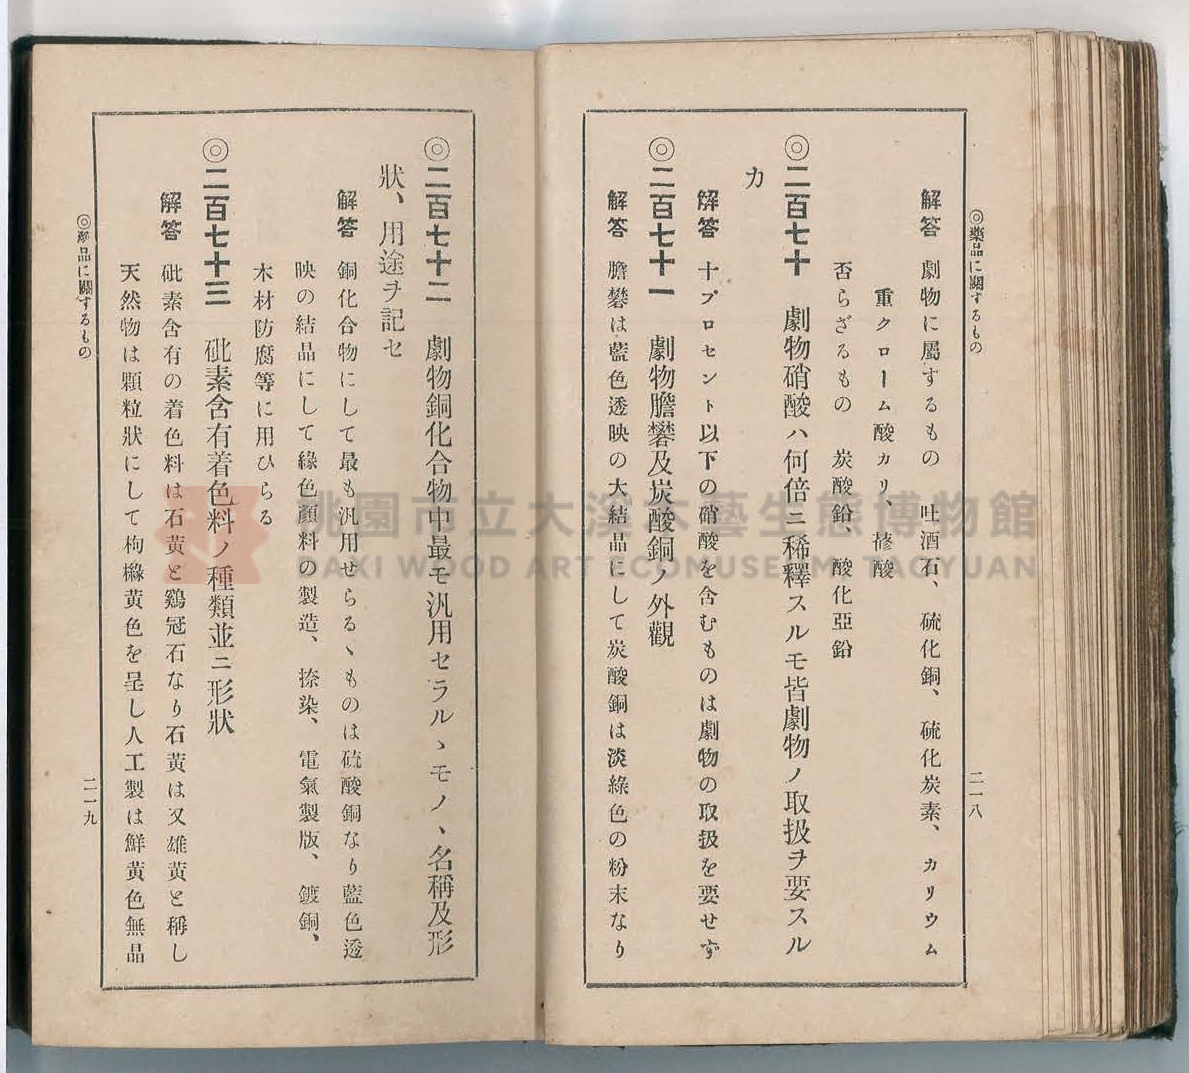 ◎藥品に關するもの
二一八
解答 劇物に屬するもの 吐酒石、硫化銅、硫化炭素、カリウム
重クローム酸カリ、蓚酸
否らざるもの 炭酸鉛、酸化亞鉛
◎二百七十 劇物硝酸ハ何倍ニ稀釋スルモ皆劇物ノ取扱ヲ要スル
カ
解答 十プロセント以下の硝酸を含むものは劇物の取扱を要せず
◎二百七十一 劇物膽礬及炭酸銅ノ外觀
解答 膽礬は藍色透映の大結晶にして炭酸銅は淡綠色の粉末なり
◎二百七十二 劇物銅化合物中最モ汎用セラルヽモノヽ名稱及形
狀、用途ヲ記セ
解答 銅化合物にして最も汎用せらるヽものは硫酸銅なり藍色透
映の結晶にして綠色顏料の製造、捺染、電氣製版、鍍銅、
木材防腐等に用ひらる
◎二百七十三 砒素含有着色料ノ種類並ニ形狀
解答 砒素含有の着色料は石黄と鷄冠石なり石黄は又雄黄と稱し
天然物は顆粒狀にして枸櫞黄色を呈し人工製は鮮黄色無晶
◎藥品に關するもの
二一九
桃園市立大溪木藝生態博物館
DAXI WOOD ART ECOMUSEUM, TAOYUAN